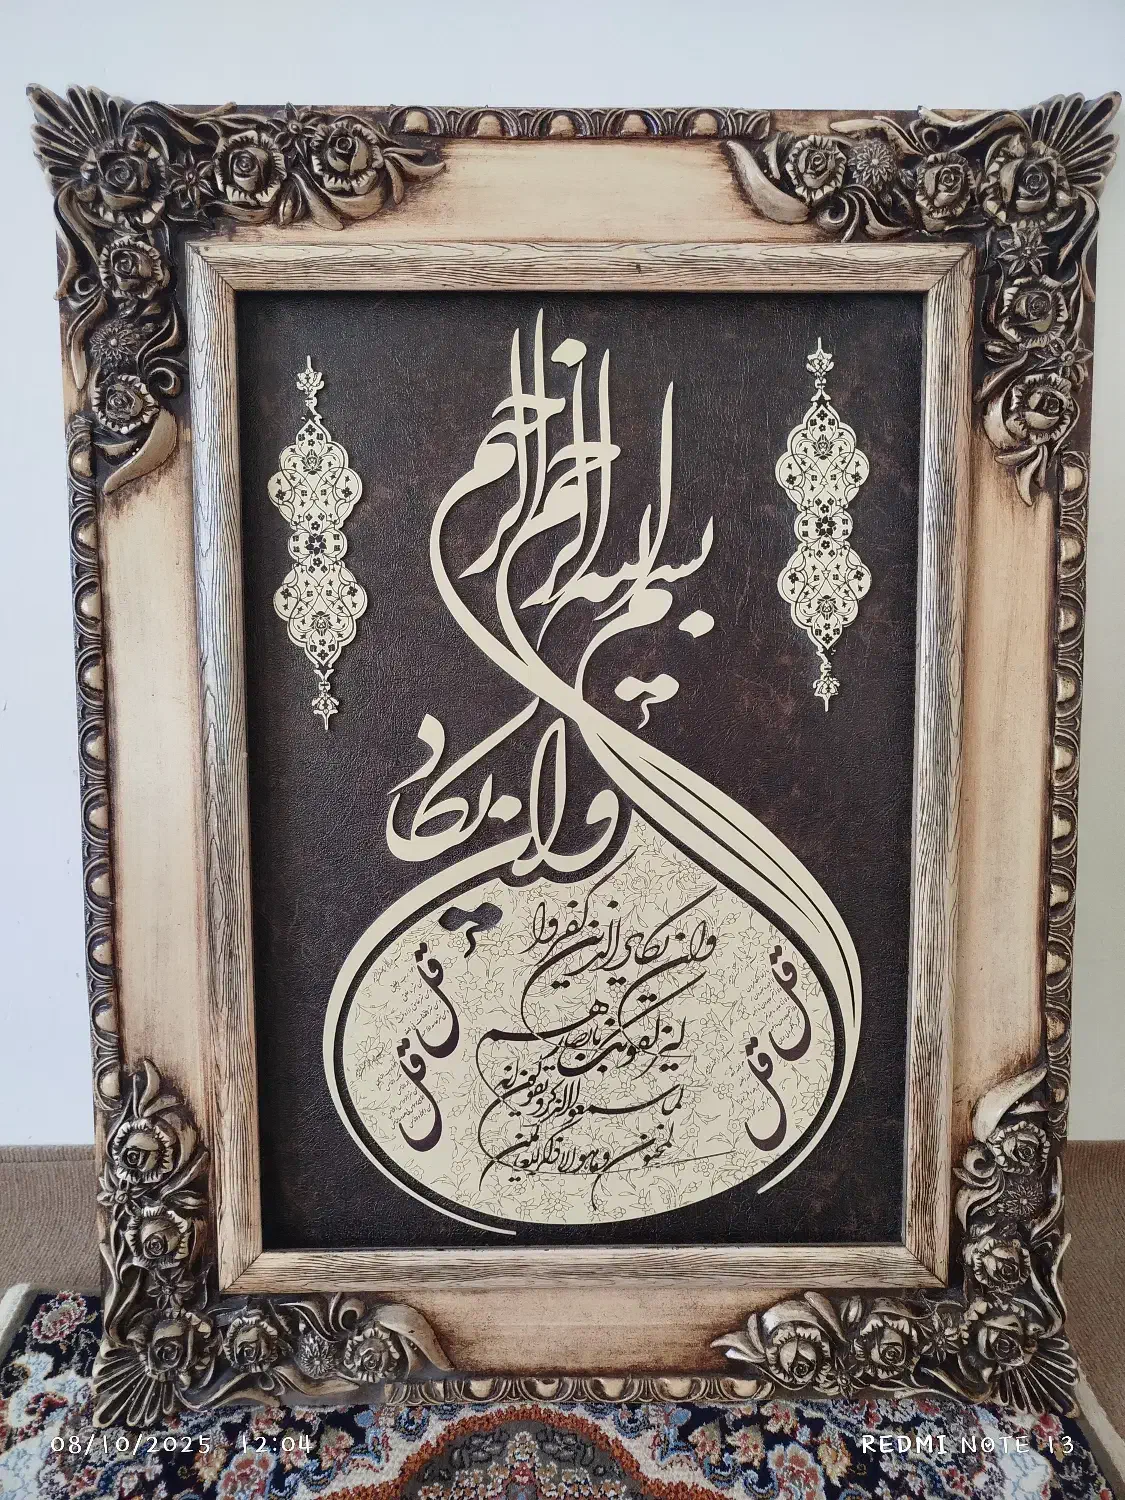 بسم الله الرحمن الرحیم
وان یکاد
وان یکاد الذین کفروا
لیزلقونک بابصارهم
لما سمعوا الذکر و یقولون انه
لمجنون و ما هو الا ذکر للعالمین
قل
قل
قل
قل
08/10/2025 12:04
REDMI NOTE 13